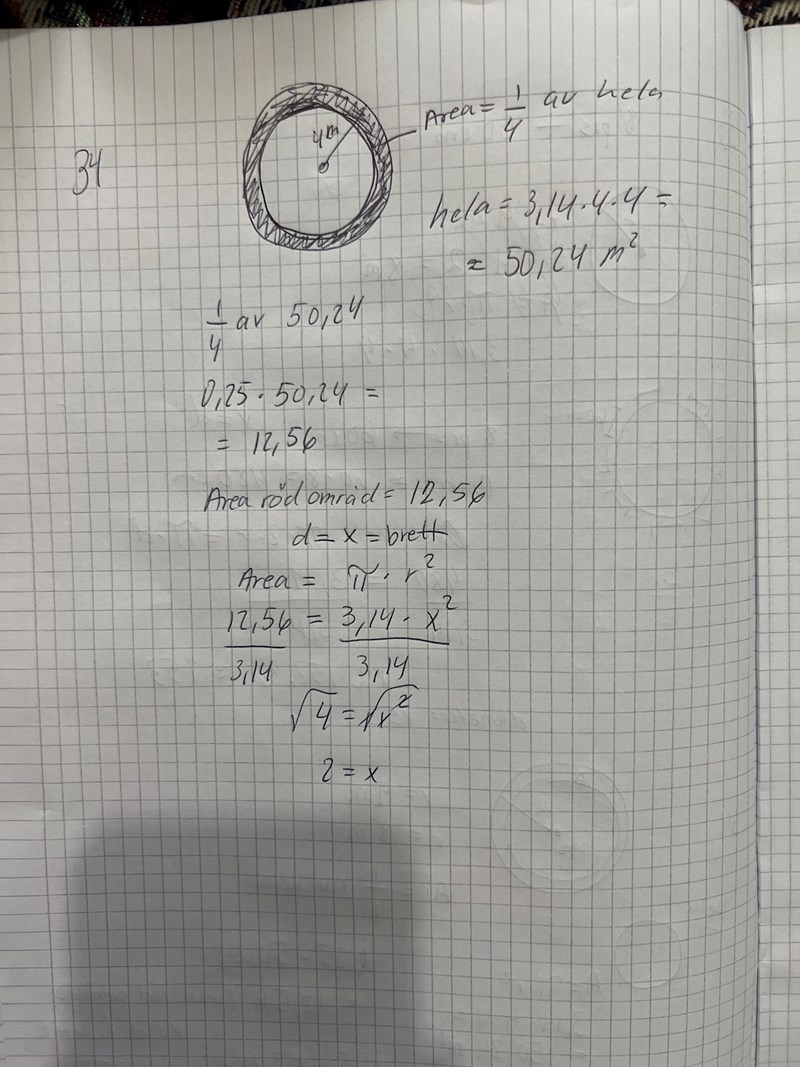 34
4m
Area = 1/4 av hela
hela = 3,14 · 4 · 4 =
= 50,24 m²
1/4 av 50,24
0,25 · 50,24 =
= 12,56
Area röd områd = 12,56
d = x = brett
Area = π · r²
12,56/3,14 = 3,14 · x²/3,14
√4 = √x²
2 = x